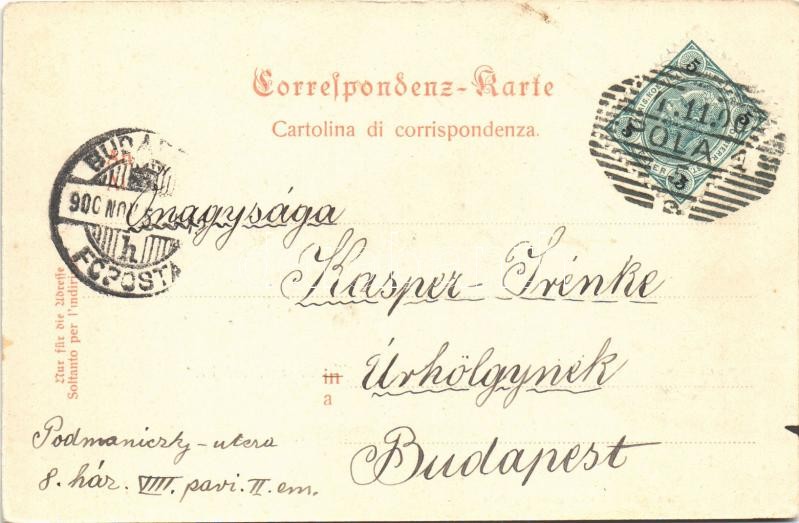 Correspondenz-Karte
Cartolina di corrispondenza.
5
5
5
5
.11.00
POLA
BUDAPE
900 NOV
h
FŐPOSTA
Nur für die Adresse
Soltanto per l'indiri
Önagysága
Kasper-Irénke
in
a
Úrhölgynek
Budapest
Podmaniczky-utcza
8. ház. VIII. pavi. II. em.